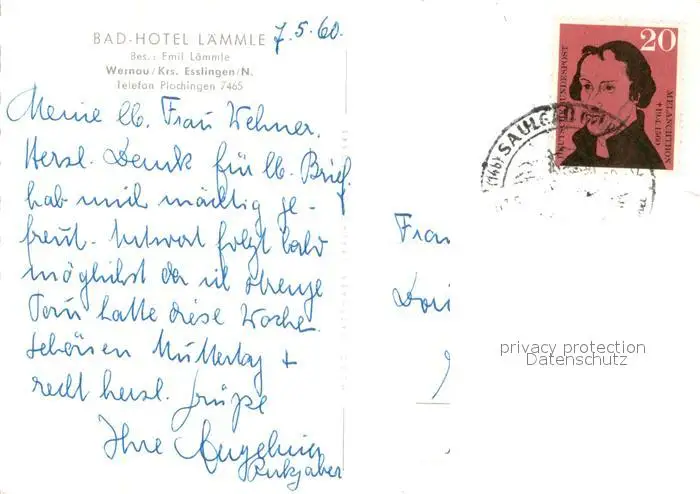 BAD-HOTEL LÄMMLE
Bes.: Emil Lämmle
Wernau/Krs. Esslingen/N.
Telefon Plochingen 7465
7.5.60.
Meine lb. Frau Wehner.
Herzl. Dank für lb. Brief,
hab mich mächtig ge-
freut. Antwort folgt bald
möglichst da ich strenge
Tour hatte diese Woche.
Schönen Muttertag +
recht herzl. Grüße
Ihre
Frau
20
DEUTSCHE BUNDESPOST
MELANCHTHON
† 19.4.1560
(14b) SAULGAU
privacy protection
Datenschutz